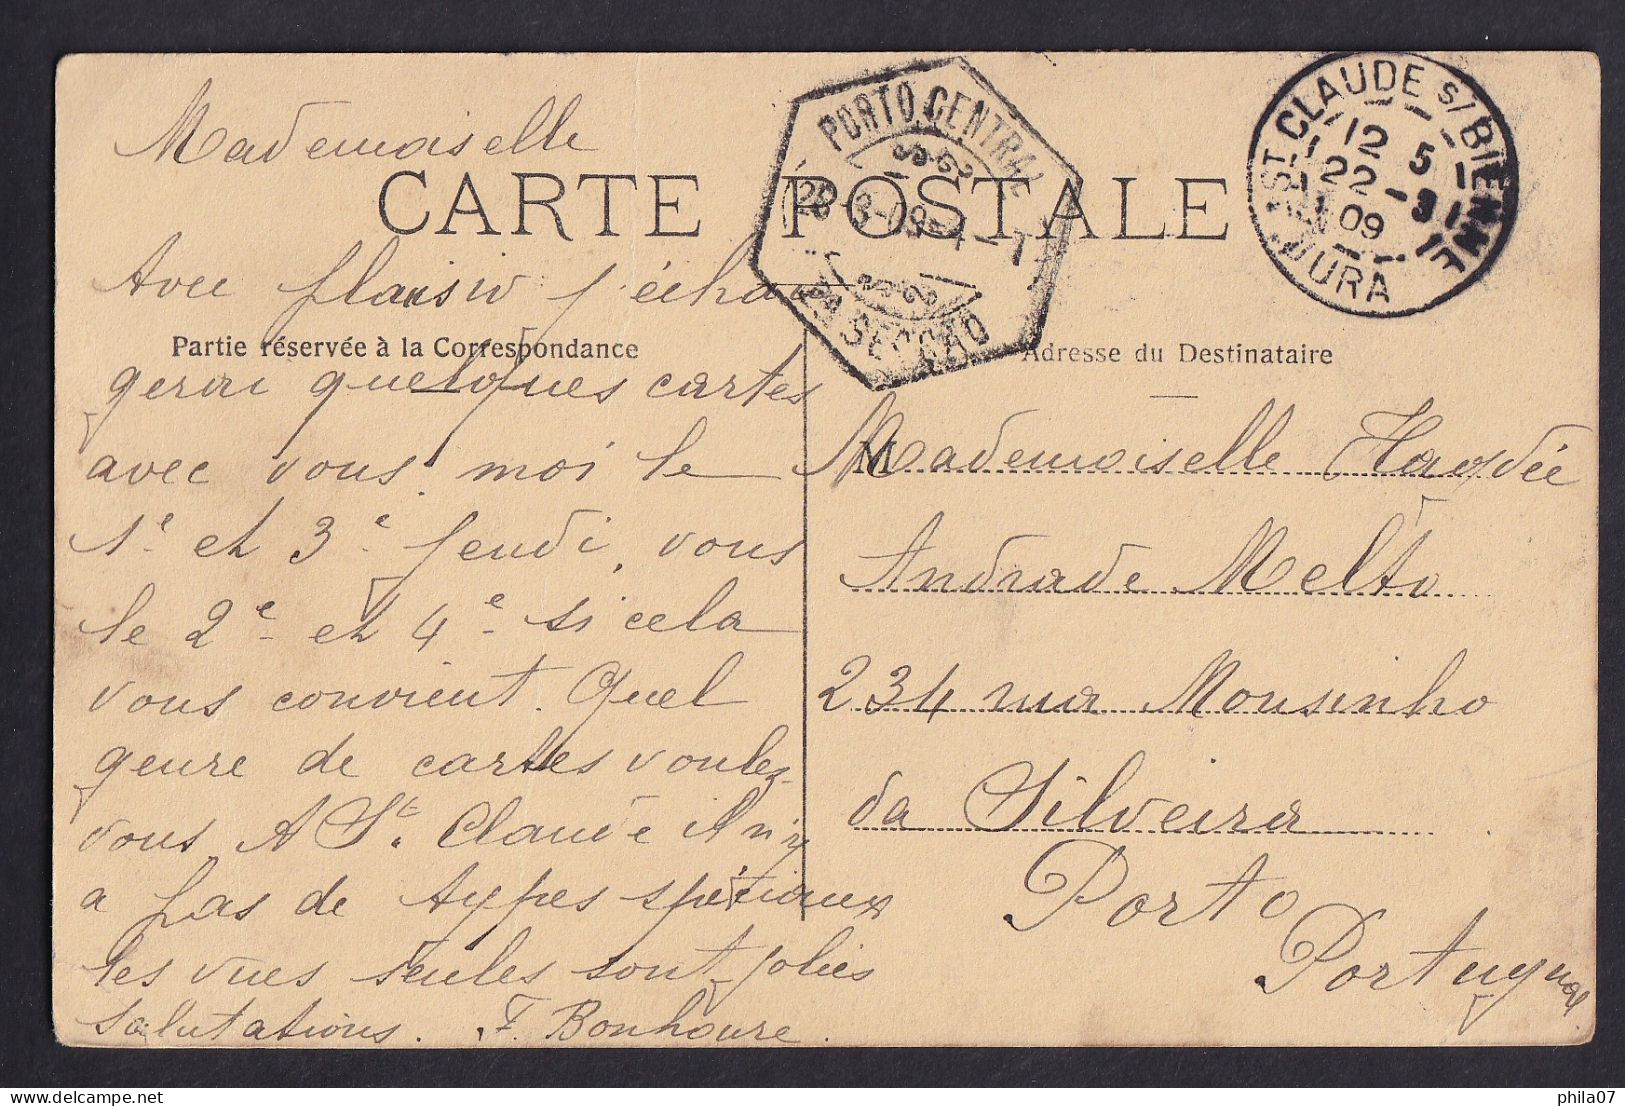 Mademoiselle
CARTE POSTALE
Avec plaisir j'écha
Partie réservée à la Correspondance
gerai quelques cartes
avec vous, moi le
1e et 3e Jeudi, vous
le 2e et 4e si cela
vous convient. Quel
genre de cartes voulez
vous A St. Claude il n'y
a pas de types spéciaux
les vues seules sont jolies
Salutations. F. Bonhoure.
PORTO CENTRAL
3-09
SECÇÃO
ST CLAUDE S/ BIENNE
12 5
22 -3
09
JURA
Adresse du Destinataire
M
Mademoiselle
Andrade Mello
234 rua Mousinho
da Silveira
Porto
Portugal
phila07